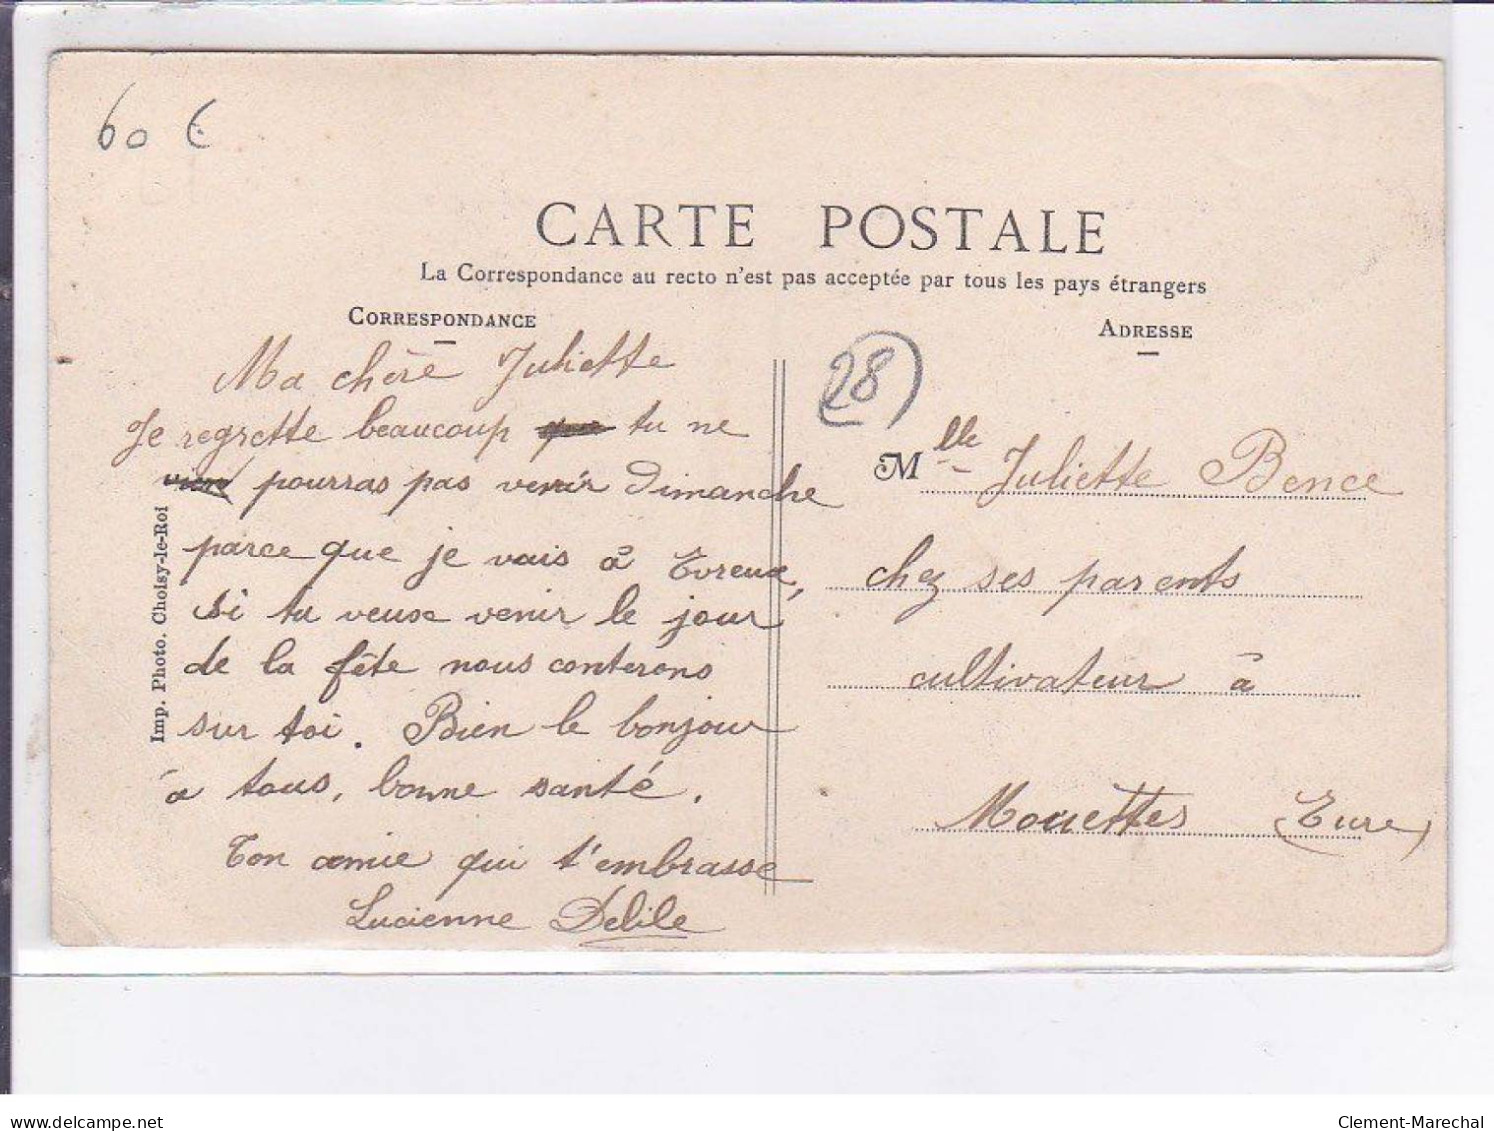 60 €
CARTE POSTALE
La Correspondance au recto n'est pas acceptée par tous les pays étrangers
CORRESPONDANCE
Ma chère Juliette
Je regrette beaucoup que tu ne
vien pourras pas venir Dimanche
parce que je vais à Evreux,
Si tu veuse venir le jour
de la fête nous conterons
sur toi. Bien le bonjour
à tous, bonne santé.
Ton amie qui t'embrasse
Lucienne Delile
Imp. Photo. Choisy-le-Roi
ADRESSE
28
Mlle Juliette Bence
chez ses parents
cultivateur à
Mouettes Eure)
www.delcampe.net
Clement-Marechal